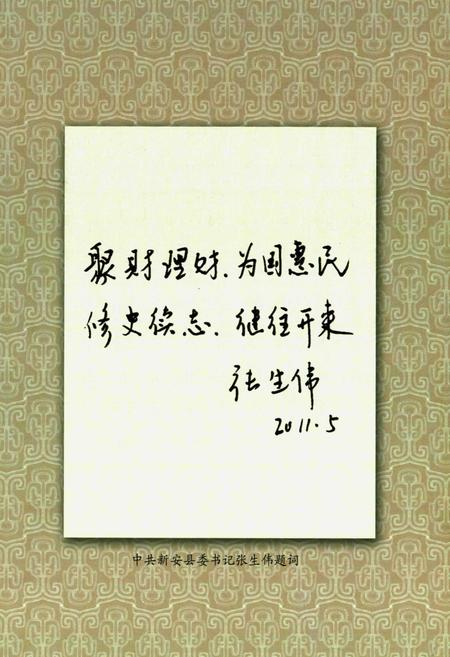 聚财理财、为国惠民
修史续志、继往开来
张生伟
2011.5
中共新安县委书记张生伟题词